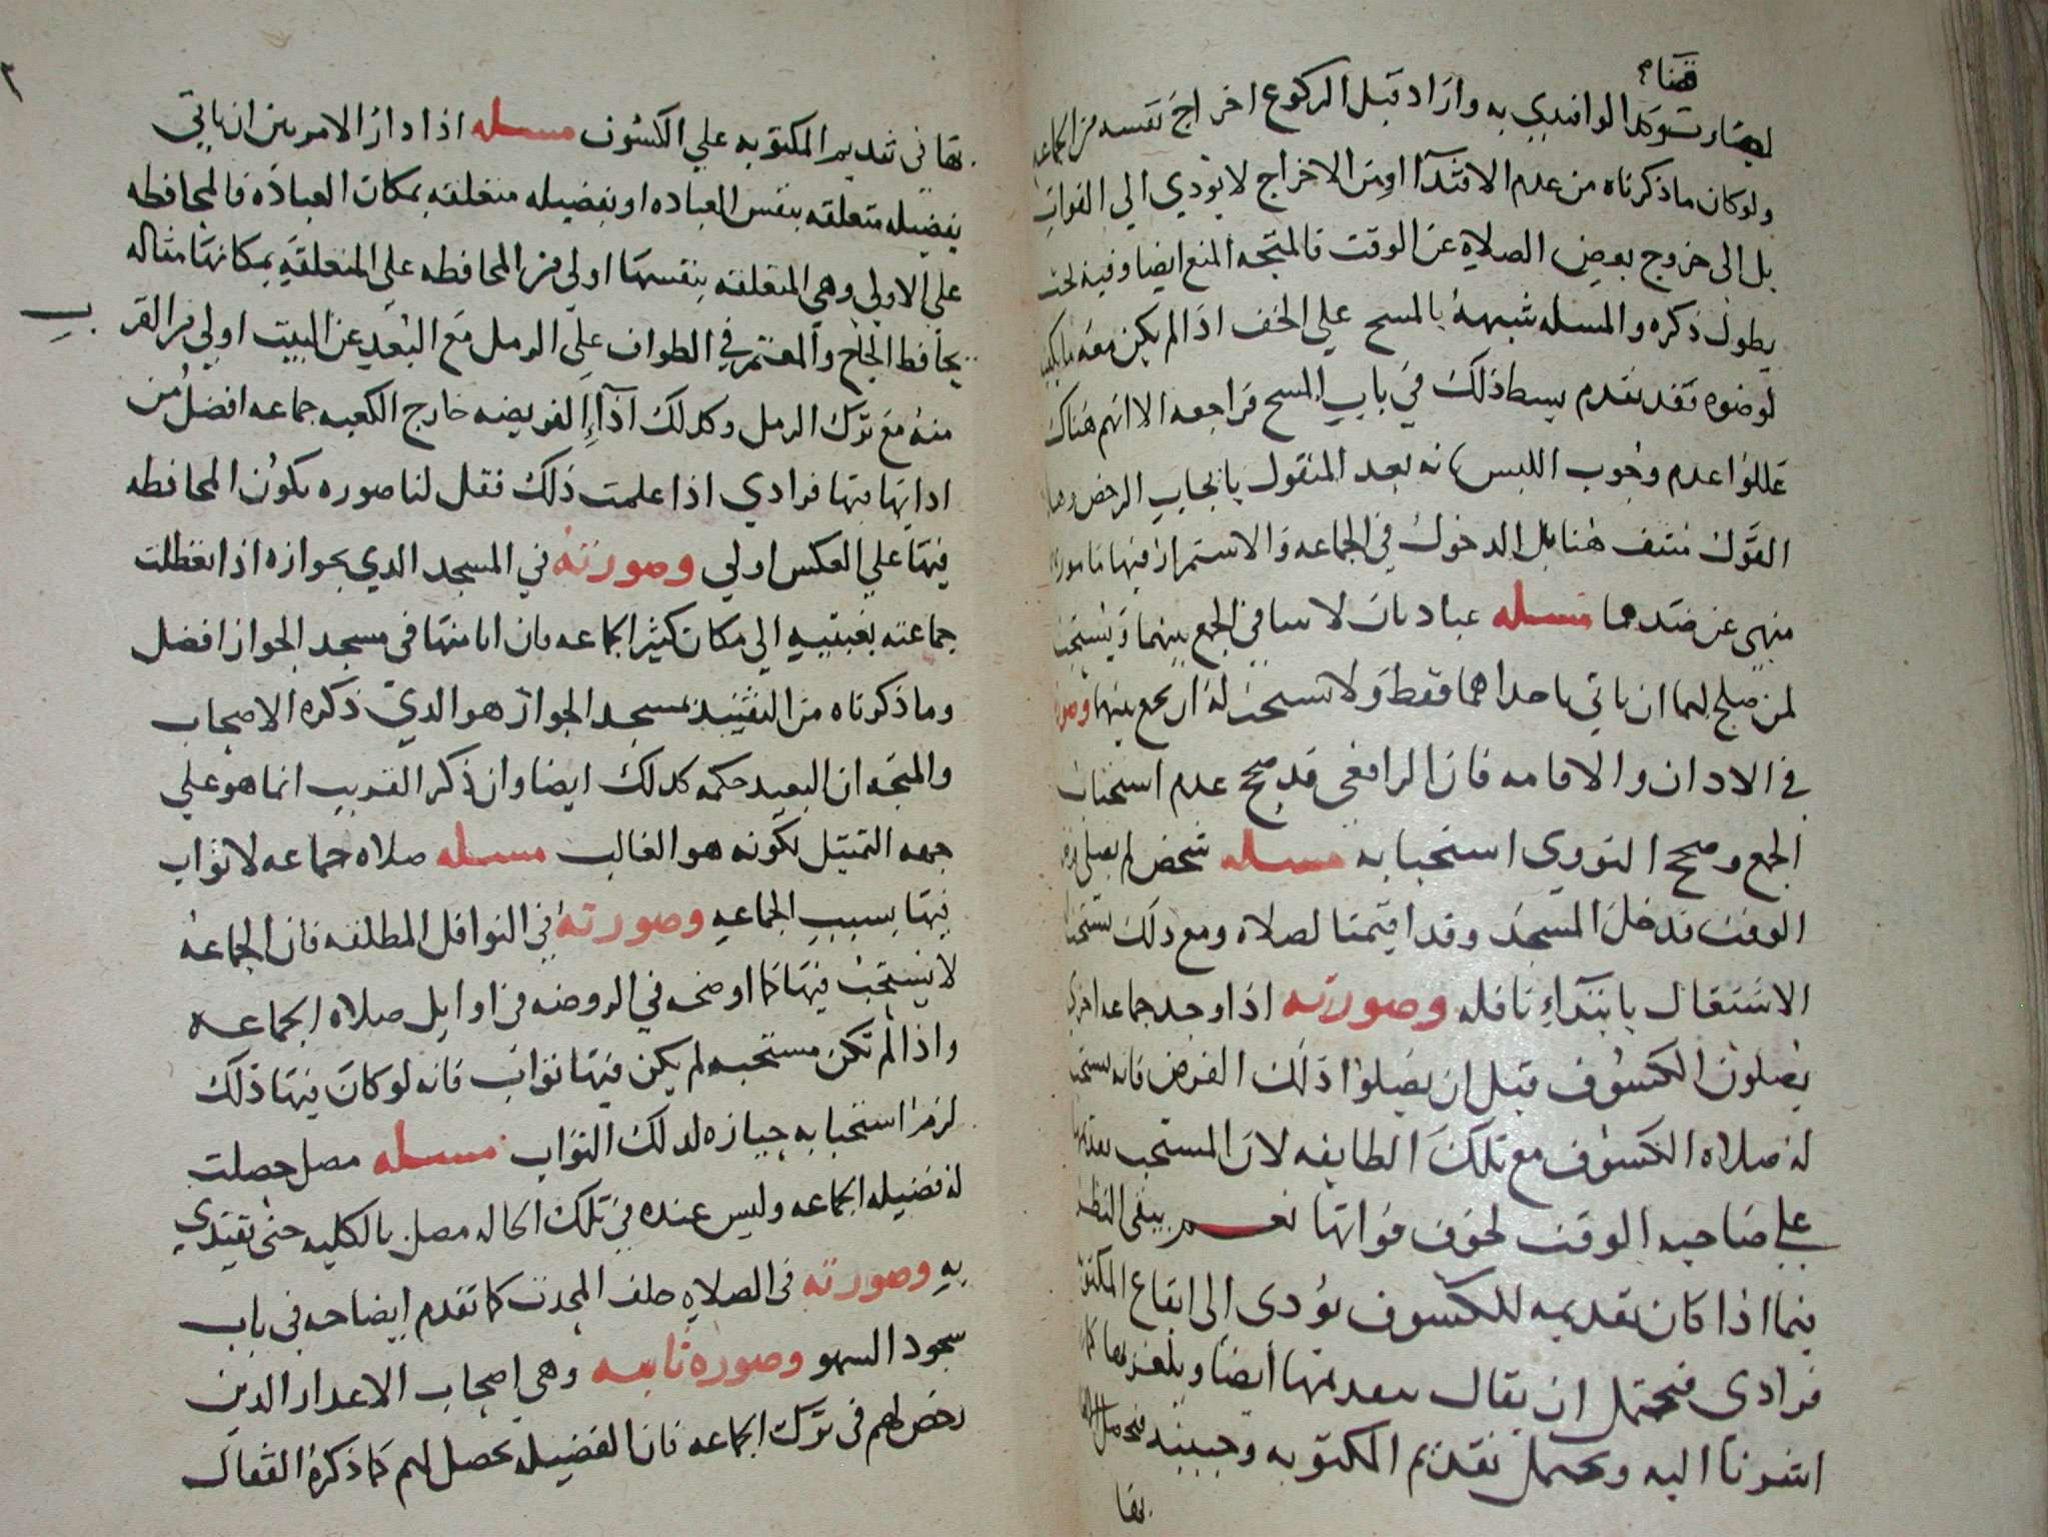 قضاء
وكذا لو اقتدي به واراد قبل الركوع اخراج نفسه من الجماعه
ولو كان ما ذكرناه من عدم الاقتدآ او من الاخراج لا يودي الي الفوات
بل الى خروج بعض الصلاه عن الوقت فالمتجه المنع ايضا وفيه بحث
يطول ذكره والمسله شبيهة بالمسح علي الخف اذا لم يكن معه ما يكفيه
لوضوه فقد تقدم بسط ذلك في باب المسح فراجعه الا انهم هناك
عللوا عدم وجوب اللبس بانه بعد المنقول بايجاب الرخص وهذا
القول منتف هنا بل الدخول في الجماعه والاستمرار فيها مامور به
منهي عن ضدهما مسله عبادتان لا تنافي في الجمع بينهما ويستحب
لمن صلح لهما ان ياتي باحداهما فقط ولا تستحب له ان يجمع بينهما وصورته
في الادان والاقامه فان الرافعي قد صحح عدم استحباب
الجمع وصحح النووي استحبابه مسله شخص لم يصلي فرض
الوقت فدخل المسجد وقد اقيمت الصلاه ومع ذلك يستحب
الاشتغال بابتدآء نافله وصورته اذا وجد جماعه اخري
يصلون الكسوف قبل ان يصلوا ذلك الفرض فانه يستحب
له صلاه الكسوف مع تلك الطايفه لان المستحب تقديمها
علي صاحبه الوقت لخوف فواتها نعم يبقى النظر
فيما اذا كان تقديمه للكسوف يودى إلى ايقاع المكتوبه
فرادى فيحتمل ان يقال بتقديمها أيضا ويلغز بها كما
اشرنا اليه ويحتمل تقديم المكتوبه وحينيذ فيحصل الالغاز
بقا
بقا في تقديم المكتوبه علي الكسوف مسله اذا دار الامر بين ان ياتي
بفضيله متعلقه بنفس العباده او بفضيله متعلقه بمكان العباده فالمحافظه
علي الاولي وهي المتعلقه بنفسها اولي من المحافظه علي المتعلقه بمكانها مثاله
يحافظ الحاج والمعتمر في الطواف علي الرمل مع البعد عن البيت اولي من القر
ب
منه مع ترك الرمل وكذلك اذآء الفريضه خارج الكعبه جماعه افضل من
ادايها فيها فرادي اذا علمت ذلك فقل لنا صوره يكون المحافظه
فيها علي العكس اولي وصورته في المسجد الدي بجوازه اذا تعطلت
جماعته بغيبته الي مكان كثير الجماعه فان اقامتها في مسجد الجواز افضل
وما ذكرناه من التقييد بمسجد الجواز هو الدي ذكره الاصحاب
والمتجه ان البعيد حكمه كدلك ايضا وان ذكر القريب انما هو علي
جهه التمثيل لكونه هو الغالب مسله صلاه جماعه لا ثواب
فيها بسبب الجماعه وصورته في النوافل المطلقه فان الجماعه
لا يستحب فيها كما اوضحه في الروضه من اوايل صلاه الجماعه
واذا لم تكن مستحبه لم يكن فيها ثواب فانه لو كان فيها ذلك
لزم استحبابه حيازه لدلك الثواب مسله مصل حصلت
له فضيله الجماعه وليس عنده في تلك الحاله مصل بالكليه حتى يقتدي
به وصورته في الصلاه خلف المحدث كما تقدم ايضاحه في باب
سجود السهو وصوره ثانيه وهي اصحاب الاعدار الدين
رخص لهم في ترك الجماعه فان الفضيله تحصل لهم كما ذكره القفال